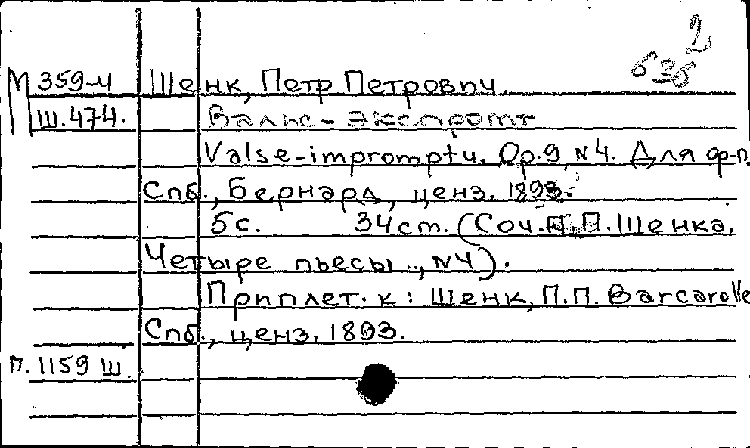 2
635
М 359-4 Шенк, Петр Петрович.
Ш.474. Вальс-экспромт
Valse-impromptu. Op.9, N4. Для ф-п.
Спб., Бернард, ценз. 1893.
5с. 34 cm. (Соч. П.П.Шенка.
Четыре пьесы .., N4).
Приплет. к: Шенк, П.П. Barcarolle
Спб., ценз. 1893.
п. 1159 ш.